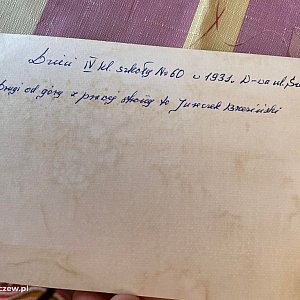 Dzieci IV kl szkoły No 60 w 1931. W-wa ul.
drugi od góry z prawej strony to Jureczek Brzeziński
czew.pl